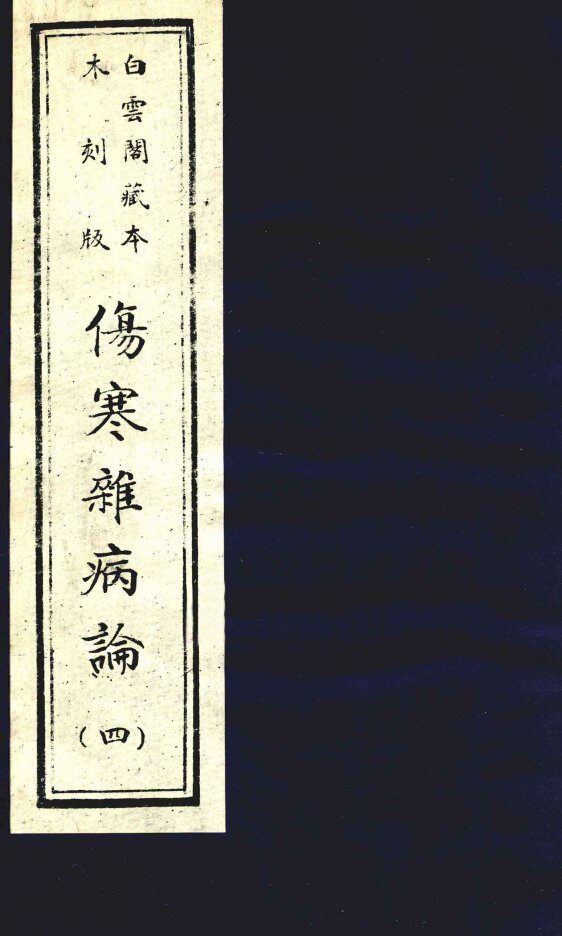 白雲閣藏本
木刻版
傷寒雜病論
(四)